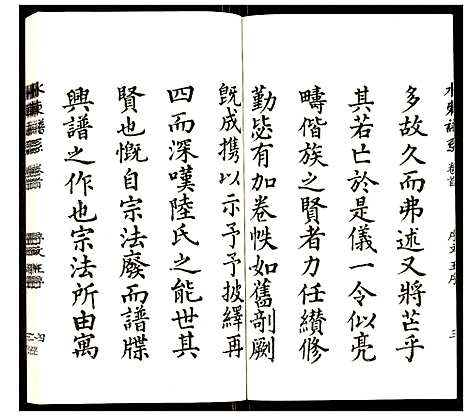 多故久而弗述又將芒乎
其若亡於是儀一令似亮
疇偕族之賢者力任纉修
勤毖有加卷帙如舊剞劂
既成携以示予予披繹再
四而深嘆陸氏之能世其
賢也慨自宗法廢而譜牒
興譜之作也宗法所由寓